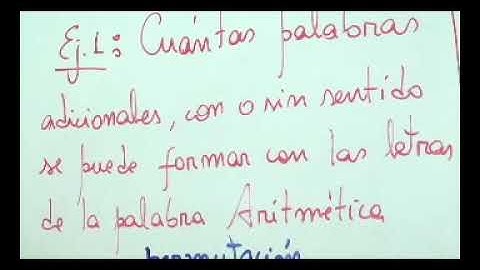 Ej.1: Cuántas palabras
adicionales, con o sin sentido
se puede formar con las letras
de la palabra Aritmética
permutación